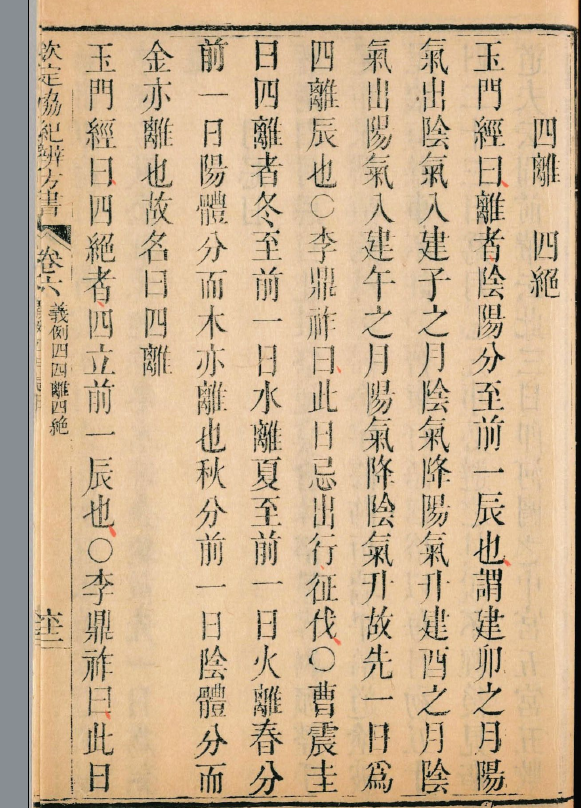 四離　四絶
玉門經曰離者陰陽分至前一辰也謂建卯之月陽
氣出陰氣入建子之月陰氣降陽氣升建酉之月陰
氣出陽氣入建午之月陽氣降陰氣升故先一日爲
四離辰也○李鼎祚曰此日忌出行征伐○曹震圭
曰四離者冬至前一日水離夏至前一日火離春分
前一日陽體分而木亦離也秋分前一日陰體分而
金亦離也故名曰四離
玉門經曰四絶者四立前一辰也○李鼎祚曰此日
欽定協紀辨方書
卷六
義例四四離四絶